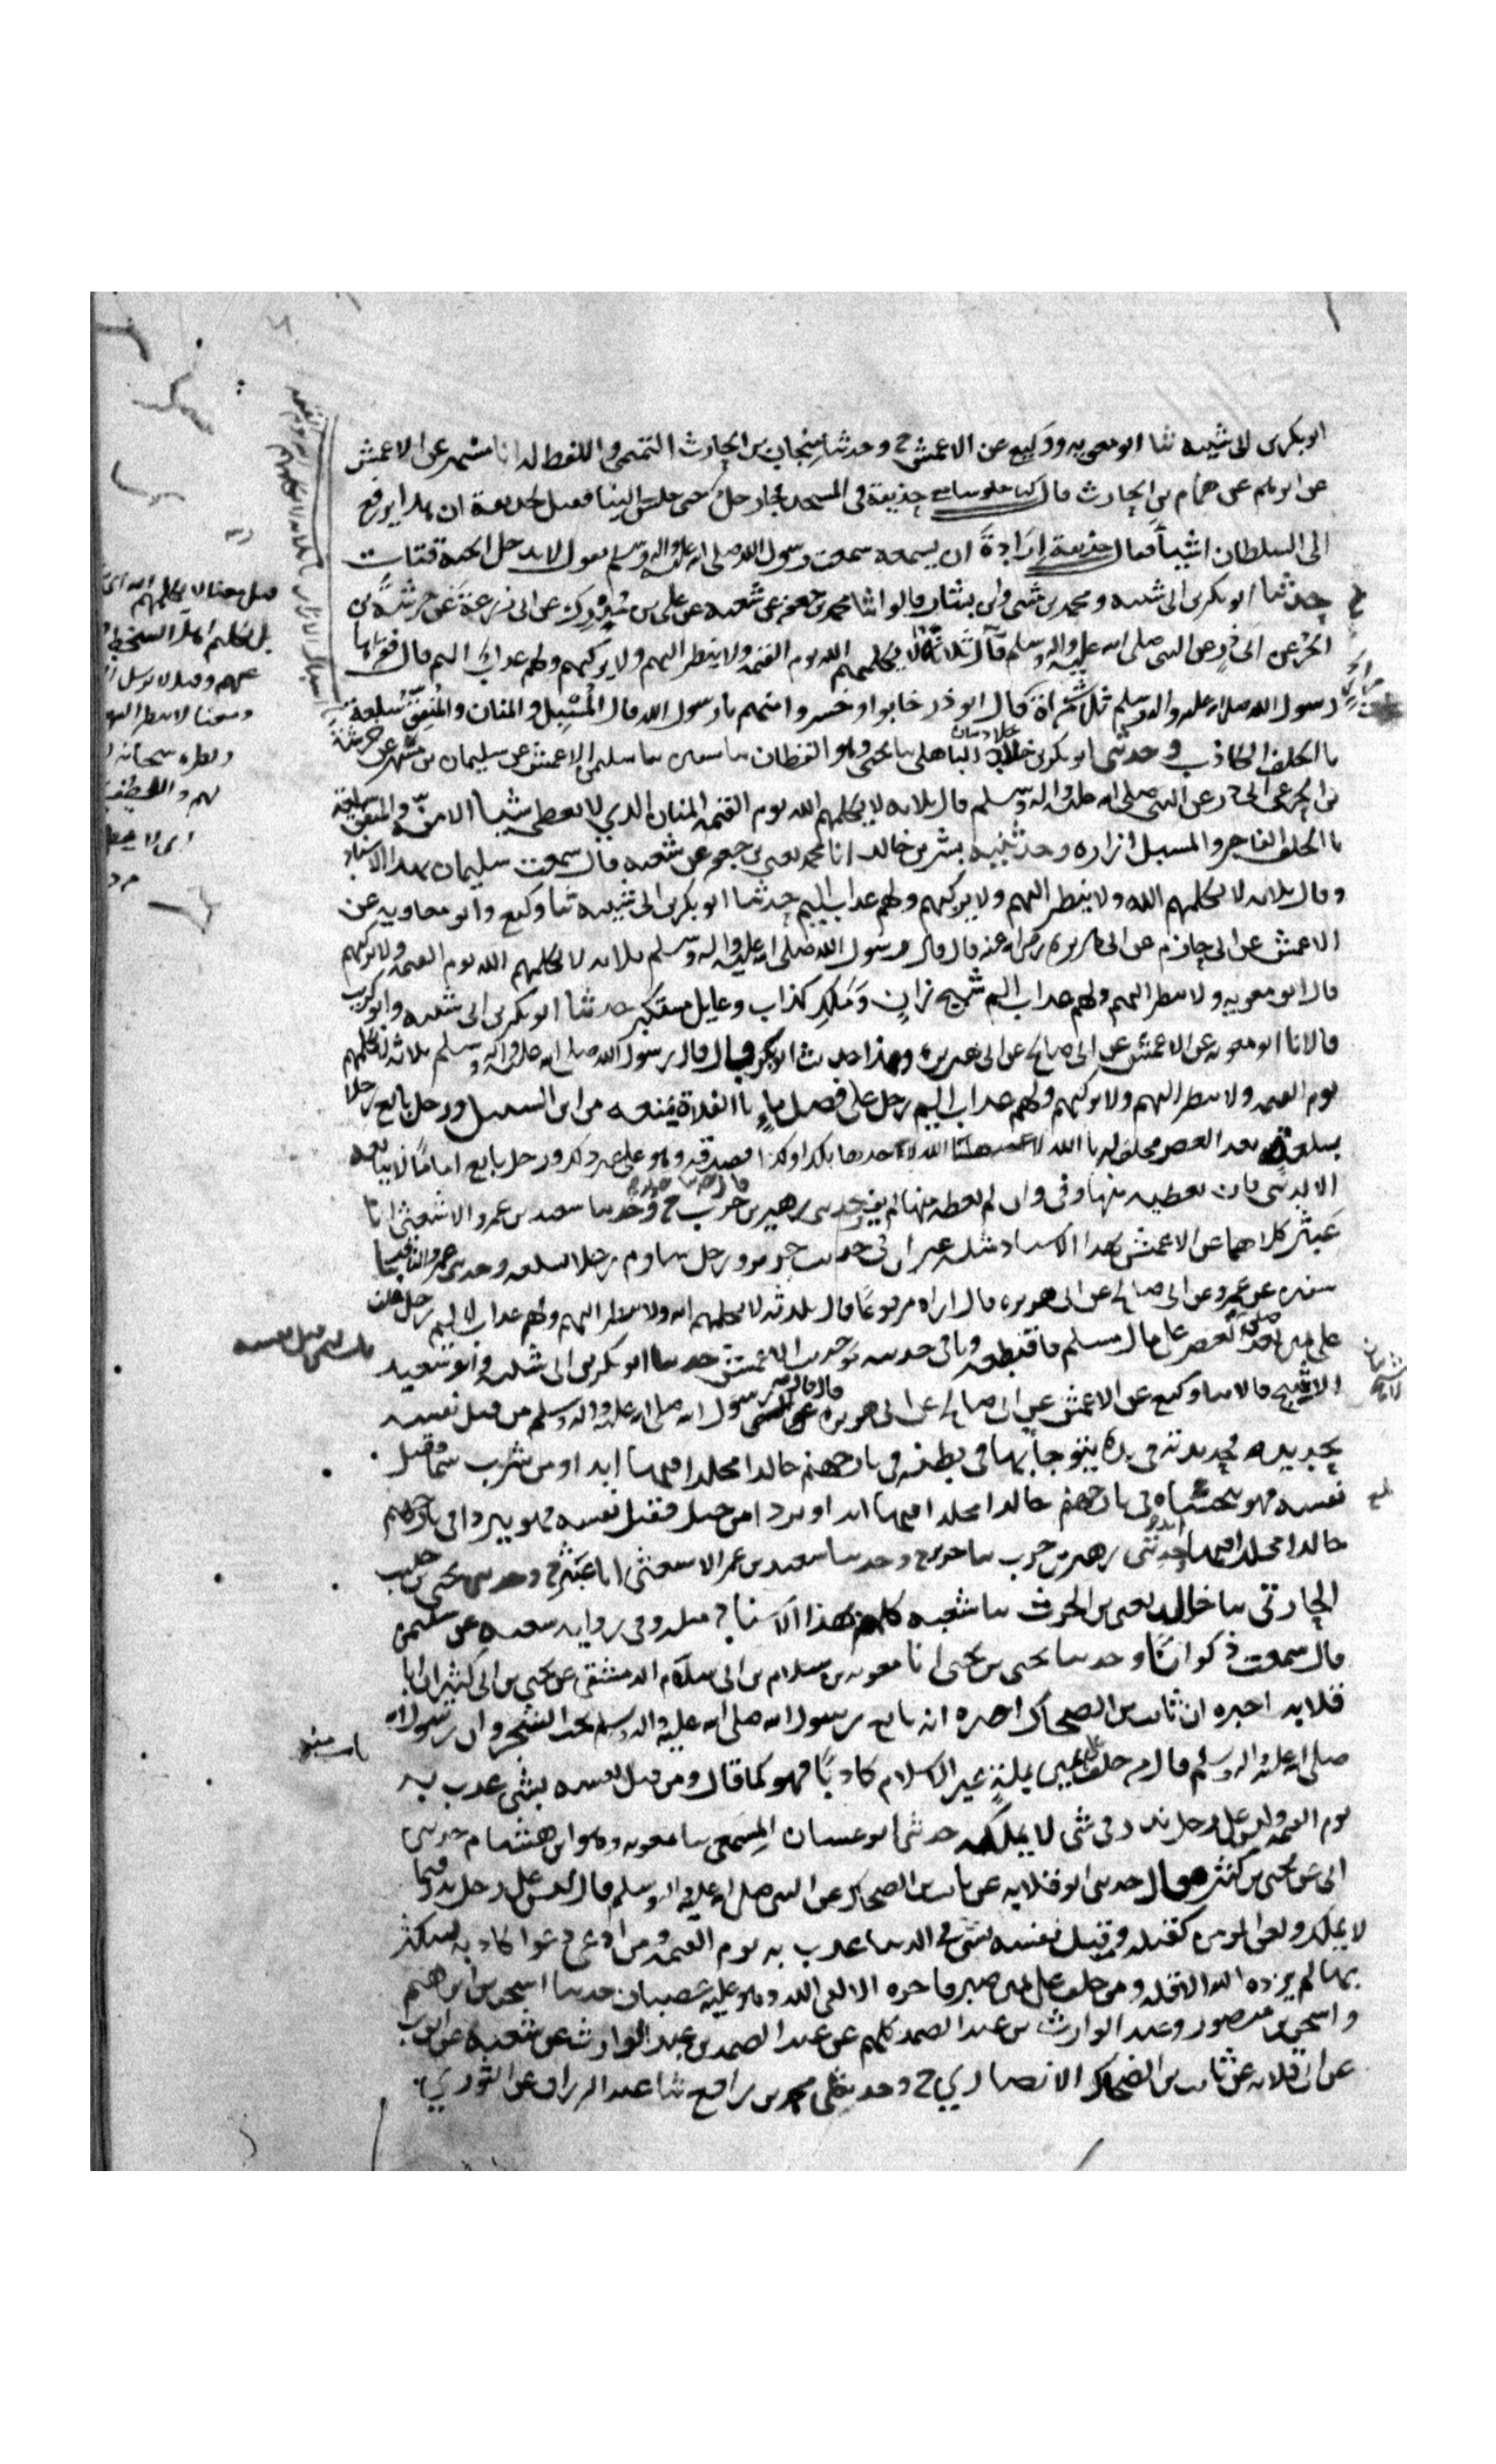 ابو بكر بن ابى شيبه ثنا ابو معويه ووكيع عن الاعمش ح وحدثنا منجاب بن الحارث التميمي واللفظ له انا ابن مسهر عن الاعمش
عن ابرهيم عن همام بن الحارث قال كنا جلوسا مع حذيفة في المسجد فجاء رجل حتى جلس الينا فقيل لحذيفة ان هذا يرفع
الى السلطان اشياً فقال حذيفة إرَادةَ ان يسمعه سمعت رسول الله صلى الله عليه واله وسلم يقول لا يدخل الجنة قتات
حدثنا ابو بكر بن ابى شيبه ومحمد بن مثنى وابن بشار قالوا ثنا محمد بن جعفر عن شعبه عن على بن مُدرِك عن ابى زرعة عن خرشة بن
الحُر عن ابى ذرٍ عن النبى صلى الله عليه واله وسلم قال ثلاثة لا يكلمهم الله يوم القيمه ولا ينظر اليهم ولا يزكيهم ولهم عذاب اليم قال فقرأها
رسول الله صلى الله عليه واله وسلم ثلث مراة قال ابو ذر خابوا وخسروا من هم يا رسول الله قال المُسْبِل والمنان والمُنفِق سلعته
با الحلف الكاذب وحدثنى ابو بكر بن خلاد الباهلى ثنا يحيى وهو القطان ثنا سفين ثنا سليمن الاعمش عن سليمان بن مسهر عن خرشة
بن الحر عن ابى ذر عن النبى صلى الله عليه واله وسلم قال ثلاثه لا يكلمهم الله يوم القيمه المنان الذي لا يعطى شيا الا منّه والمنفق سلعته
با الحلف الفاجر والمسبل ازاره وحدثنيه بشر بن خالد انا محمد يعنى بن جعفر عن شعبه قال سمعت سليمان بهذا الاسناد
وقال ثلاثه لا يكلمهم الله ولا ينظر اليهم ولا يزكيهم ولهم عذاب اليم حدثنا ابو بكر بن ابى شيبه ثنا وكيع وابو معاويه عن
الاعمش عن ابى حازم عن ابى هريره رضى الله عنه قال قال رسول الله صلى الله عليه واله وسلم ثلاثه لا يكلمهم الله يوم القيمه ولا يزكيهم
قال ابو معويه ولا ينظر اليهم ولهم عذاب اليم شيخ زانٍ ومَلِكٍ كذاب وعايل مستكبر حدثنا ابو بكر بن ابى شيبه وابو كريب
قالا نا ابو معويه عن الاعمش عن ابى صالح عن ابى هريره وهذا حديث ابى بكر قال قال رسول الله صلى الله عليه واله وسلم ثلاثة لا يكلمهم
يوم القيمه ولا ينظر اليهم ولا يزكيهم ولهم عذاب اليم رجل على فضل ماءٍ با الفلاة يمنعه من ابن السبيل ورجل بايع رجلا
بسلعةٍ بعد العصر فحلف له با الله لاخذها بكذا وكذا فصدقه وهو على غير ذلك ورجل بايع اماماً لا يبايعه
الا لدنيى فان يعطيه منها وفى وان لم يعطه منها لم يف حدثنى زهير بن حرب ح وحدثنا سعيد بن عمرو الاشعثى انا
عَبثر كلاهما عن الاعمش بهذا الاسناد مثله غير ان فى حديث جرير ورجل ساوم رجلا بسلعه وحدثنى عمرو الناقد ثنا
سفين عن عمرو عن ابى صالح عن ابى هريره قال اراه مرفوعًا قال ثلاثة لا يكلمهم الله ولا ينظر اليهم ولهم عذاب اليم رجل حلف
على يمين بعد صلوة العصر على مال مسلم فاقتطعه وباقى حديثه نحو حديث الاعمش حدثنا ابو بكر بن ابى شيبه وابو سعيد
الاشج قالا ثنا وكيع عن الاعمش عن ابى صالح عن ابى هريره قال قال رسول الله صلى الله عليه واله وسلم من قتل نفسه
بحديده فحديدته فى يده يتوجأ بها فى بطنه فى نار جهنم خالدا مخلدا فيها ابدا ومن شرب سما فقتل
نفسه فهو يتحساه فى نار جهنم خالدا مخلدا فيها ابدا ومن تردا من جبل فقتل نفسه فهو يتردا فى نار جهنم
خالدا مخلدا فيها ابدا وحدثنى زهير بن حرب ثنا جرير ح وحدثنا سعيد بن عمر الاشعثى انا عَبثر ح وحدثنى يحيى بن حبيب
الحارثى ثنا خالد يعنى بن الحرث ثنا شعبه كلهم بهذا الاسناد مثله وفى روايه شعبه عن سليمن
قال سمعت ذكوان وحدثنا يحيى بن يحيى انا معويه بن سلام بن ابى سلام الدمشقى عن يحيى بن ابى كثير ان ابا
قلابه اخبره ان ثابت بن الضحاك اخبره انه بايع رسول الله صلى الله عليه واله وسلم تحت الشجر وان رسول الله
صلى الله عليه واله وسلم قال من حلف على يمين بملةٍ غير الاسلام كاذبًا فهو كما قال ومن قتل نفسه بشى عذب به
يوم القيمه وليس على رجل نذر فى شى لا يملكه حدثنى ابو غسان المِسمَعى ثنا معويه وهو ابن هشام حدثنى
ابى عن يحيى بن كثير قال حدثنى ابو قلابه عن ثابت بن الضحاك عن النبى صلى الله عليه واله وسلم قال ليس على رجل نذر فيما
لا يملك ولعن المومن كقتله ومن قتل نفسه بشى فى الدنيا عذب به يوم القيمه ومن ادعى دعوا كاذبه ليتكثر
بها لم يزده الله الا قله ومن حلف على يمين صبر فاجره الا لقى الله وهو عليه غضبان حدثنا اسحق بن ابرهيم
واسحق بن منصور وعبد الوارث بن عبد الصمد كلهم عن عبد الصمد بن عبد الوارث عن شعبه عن ايوب
عن ابى قلابه عن ثابت بن الضحاك الانصاري ح وحدثنى محمد بن رافع ثنا عبد الرزاق عن الثوري
قيل معنا لا يكلمهم الله اى